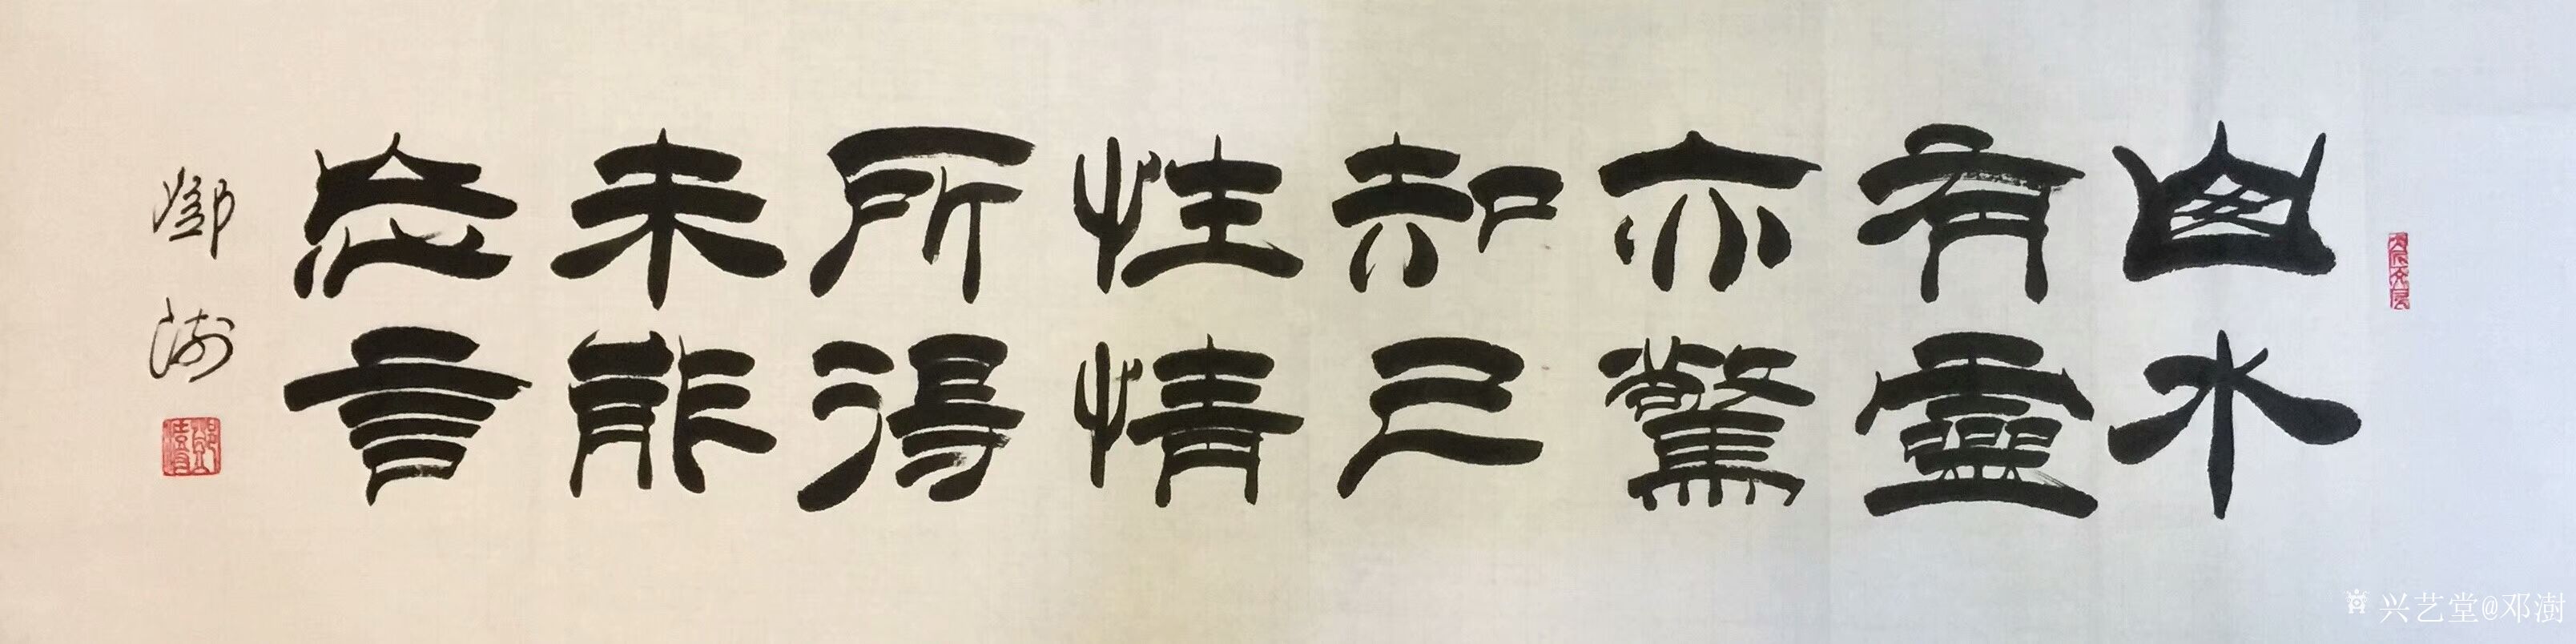 山水
有靈
亦驚
知己
性情
所得
未能
忘言
鄧澍
兴艺堂@邓澍